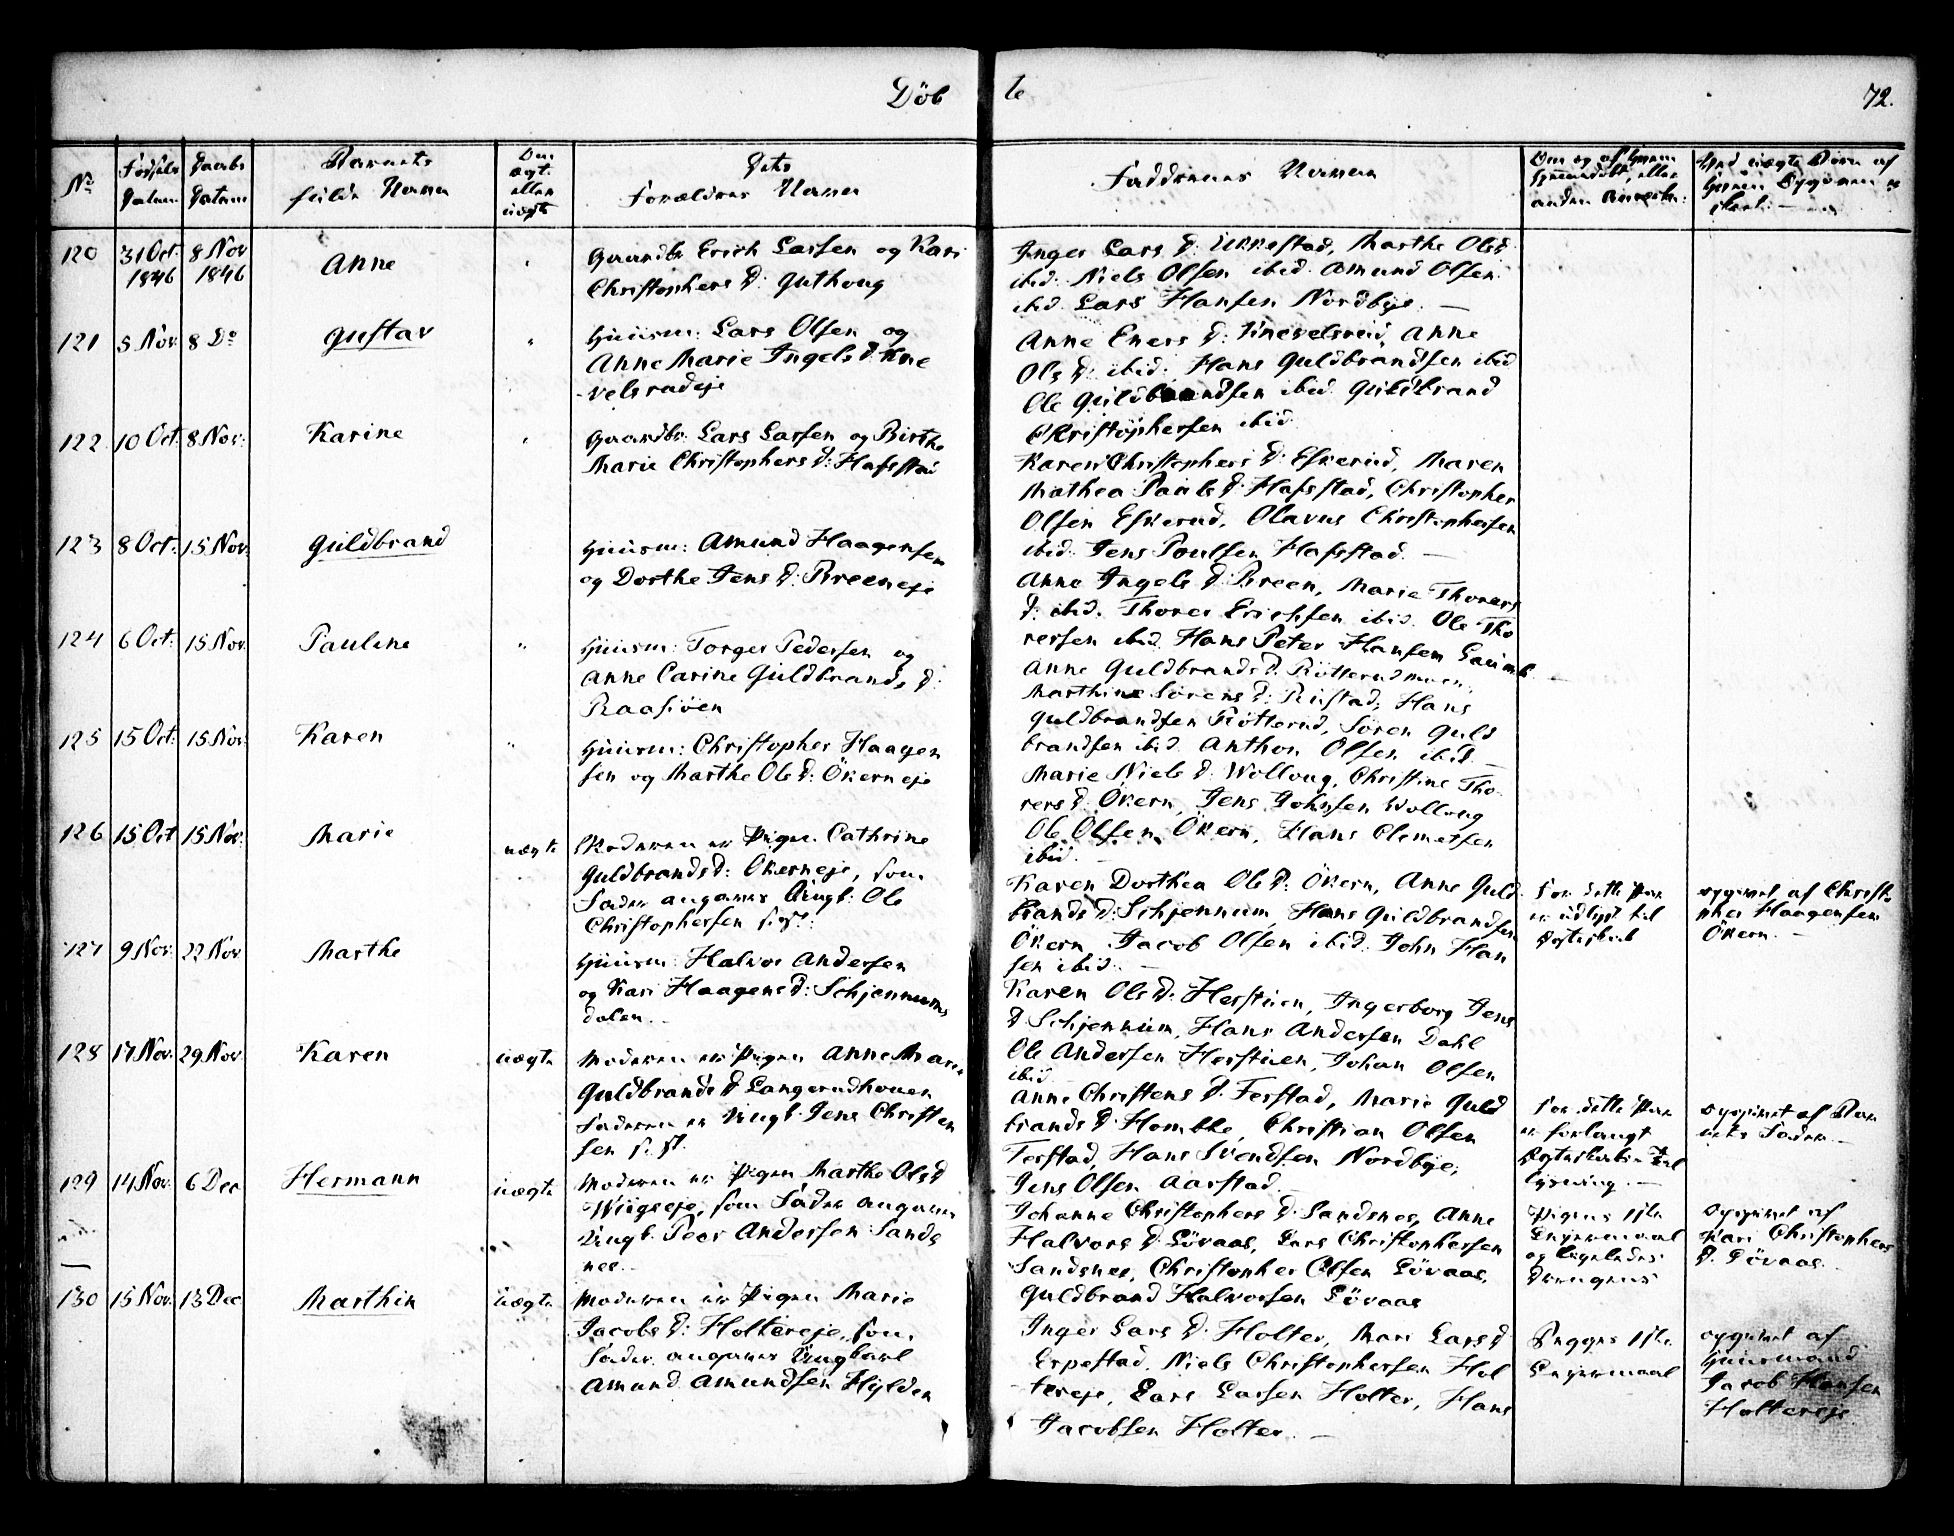 Döb
te
72.
No
Fødsels Datum
Daabs Datum
Barnets fulde Navn
Om ægte eller uægte
Dets Forældres Navne
Faddernes Navne
120 31 Oct. 1846 8 Nov 1846 Anne
Gaardbr Erich Larsen og Kari
Christophers D: Guthoug
Inger Lars D: Ukkestad, Marthe Ols D.
ibid. Niels Olsen ibid. Amund Olsen
ibid. Lars Hansen Nordbye. —
121 5 Nov. 8 Do Gustav
Huusm: Lars Olsen og
Anne Marie Ingels D. Kne
velsrudeje
Anne Eners D: Knevelsrud, Anne
Ols D: ibid. Hans Guldbrandsen ibid
Ole Guldbrandsen ibid. Guldbrand
Christophersen ibid.
122 10 Oct. 8 Nov: Karine
Gaardbr. Lars Larsen og Birthe
Marie Christophers D: Hafsstad
Karen Christophers D: Eskerud, Maren
Mathea Pauls D: Hafsstad, Christopher
Olsen Eskerud, Olavus Christophersen
ibid. Jens Poulsen Hafsstad. —
123 8 Oct: 15 Nov: Guldbrand
Huusm: Amund Haagensen
og Dorthe Jens D: Breeneje
Anne Ingels D: Breen, Marie Thorers
D: ibid. Thorer Erichsen ibid. Ole Tho
rersen ibid. Hans Peter Hansen
124 6 Oct: 15 Nov. Pauline "
Huusm: Torger Pedersen og
Anne Carine Guldbrands D:
Raasiöen
Anne Guldbrands D. Rötterudmoen,
Marthine Sörens D: Ristad, Hans
Guldbrandsen Rötterud, Sören Guld
brandsen ibid. Anthon Olsen ibid. —
125 15 Oct: 15 Nov: Karen "
Huusm: Christopher Haagen
sen og Marthe Ols D: Ökerneje
Marie Niels D: Wolloug, Christine Tho
rers D: Ökern, Jens Johnsen Wolloug
Ole Olsen Ökern, Hans Clemetsen
ibid. —
126 15 Oct 15 Nov: Marie uægte
Moderen er Pigen Cathrine
Guldbrands D: Ökerneje, som
Fader angives Ungk: Ole
Christophersen
Karen Dorthea Ols D: Ökern, Anne Guld
brands D: Schjennum, Hans Guldbrandsen
Ökern, Jacob Olsen ibid. John Han
sen ibid. —
For dette Par
er udlyst til
Ægteskab
opgivet af Christo
pher Haagensen
Ökern. —
127 9 Nov: 22 Nov Marthe
Huusm: Halvor Andersen
og Kari Haagens D: Schjennums
dalen. —
Karen Ols D: Herstuen, Ingerborg Jens
D Schjennum, Hans Andersen Dahl
Ole Andersen Herstuen, Johan Olsen
ibid.
128 17 Nov. 29 Nov Karen uægte
Moderen er Pigen Anne Marie
Guldbrands D Langerudhouen
Faderen er Ungk. Jens Christen
sen
Anne Christens D. Ferstad, Marie Guld
brands D Homble, Christian Olsen
Ferstad, Hans Svendsen Nordbye,
Jens Olsen Aarstad.
For dette Par
er forlangt
Ægteskabs Til
lysning. —
opgivet af Bar
nets Fader. —
129 14 Nov. 6 Dec Hermann uægte
Moderen er Pigen Marthe Ols D
Wiigseje, som Fader angives
Ungk. Peer Andersen Sands
nes. —
Johanne Christophers D: Sandsnes, Anne
Halvors D: Lövaas, Lars Christophersen
Sandsnes, Christopher Olsen Lövaas,
Guldbrand Halvorsen Lövaas
Pigens 1ste
Leiermaal
og ligeledes
Drengens
opgivet af
Kari Christophers
D. Lövaas.
130 15 Nov. 13 Dec Marthin uægte
Moderen er Pigen Marie
Jacobs D: Holtereje, som
Fader angives Ungkarl
Amund Amundsen Hylden
Inger Lars D: Holter, Mari Lars D
Erpestad, Niels Christophersen Hol
tereje, Lars Larsen Holter, Hans
Jacobsen Holter. —
Begges 1ste
Leiermaal
opgivet af
Huusmand
Jacob Hansen
Holtereje